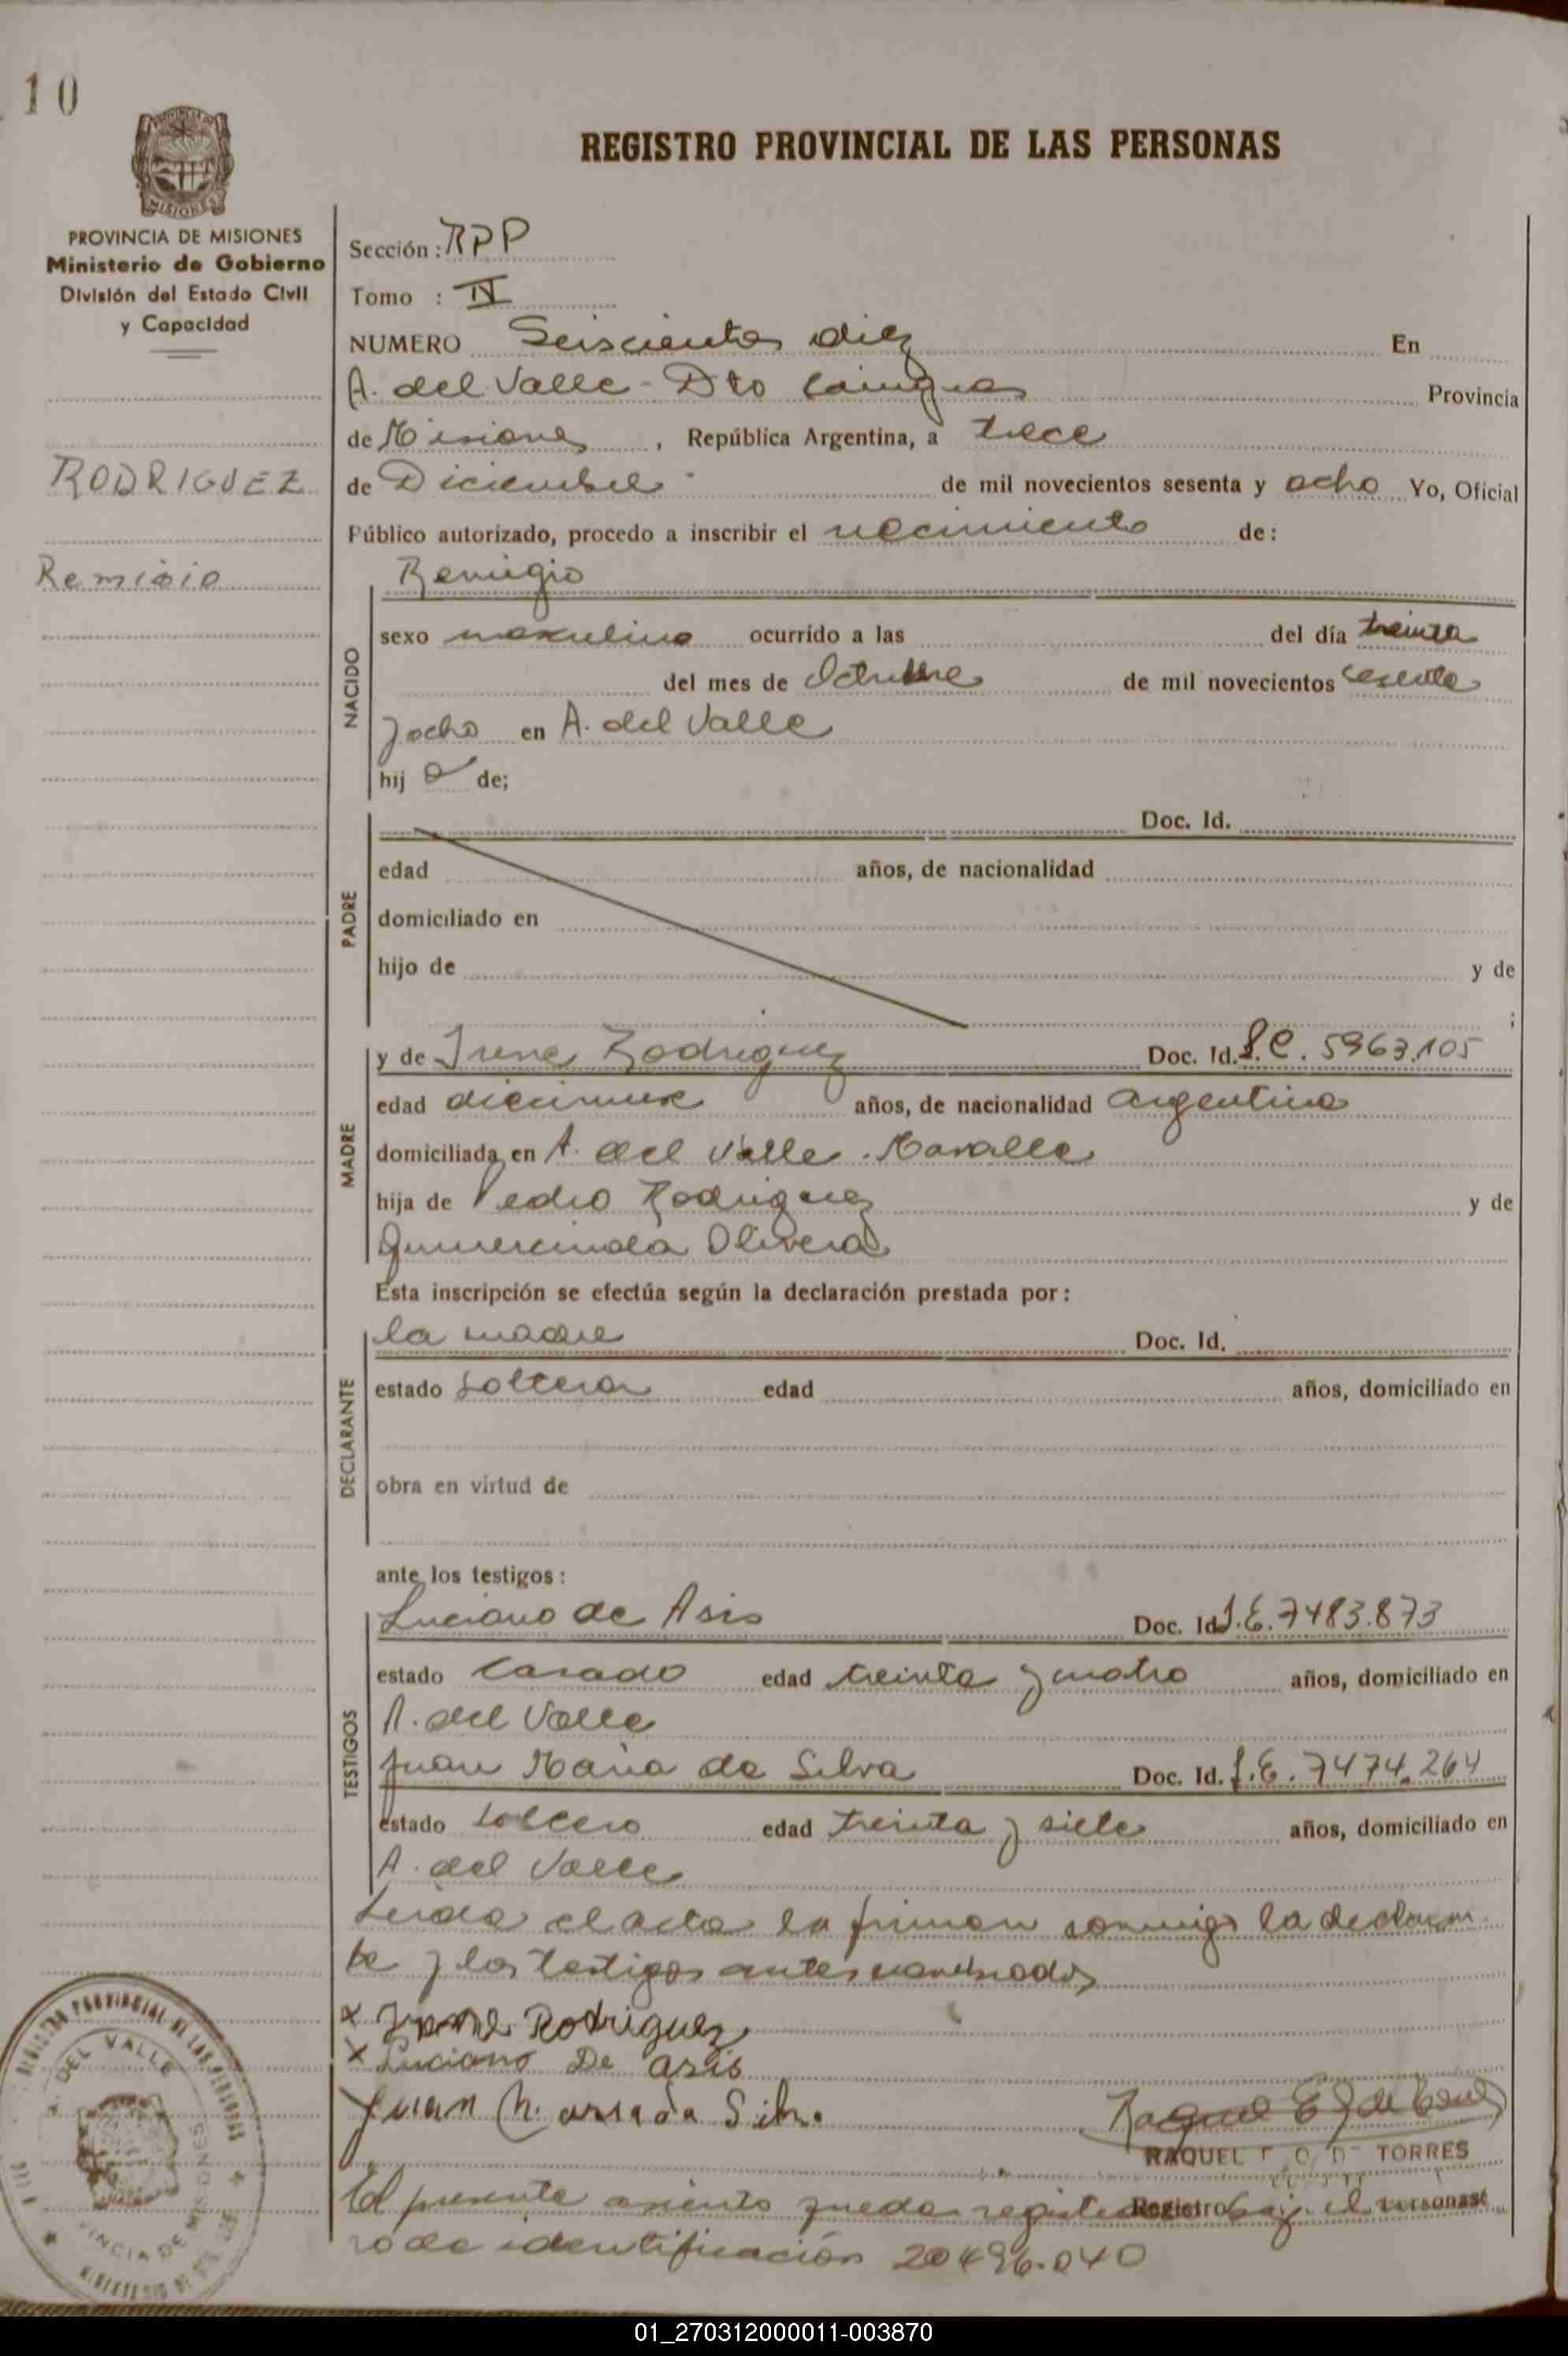 10
REGISTRO PROVINCIAL DE LAS PERSONAS
PROVINCIA DE MISIONES
Ministerio de Gobierno
División del Estado Civil
y Capacidad
RODRIGUEZ
Remigio
Sección: RPP
Tomo : IV
NUMERO Seiscientos diez En
A. del Valle - Dto Cainguas Provincia
de Misiones, República Argentina, a trece
de Diciembre de mil novecientos sesenta y ocho Yo, Oficial
Público autorizado, procedo a inscribir el nacimiento de:
NACIDO
Remigio
sexo masculino ocurrido a las del día treinta
del mes de Octubre de mil novecientos sesenta
y ocho en A. del Valle
hij o de;
PADRE
Doc. Id.
edad años, de nacionalidad
domiciliado en
hijo de y de
;
MADRE
y de Irene Rodriguez Doc. Id. L.C. 5963.105
edad diecinueve años, de nacionalidad argentina
domiciliada en A. del Valle.
hija de Pedro Rodriguez y de
Gumercinda Olivera
Esta inscripción se efectúa según la declaración prestada por:
DECLARANTE
la madre Doc. Id.
estado soltera edad años, domiciliado en
obra en virtud de
ante los testigos:
TESTIGOS
Luciano de Asis Doc. Id. L.E. 7483.873
estado casado edad treinta y cuatro años, domiciliado en
A. del Valle
Juan Maria da Silva Doc. Id. L.E. 7474.264
estado soltero edad treinta y siete años, domiciliado en
A. del Valle
Leida el acta la firman conmigo la declaran
te y los testigos antes nombrados
x Irene Rodriguez
x Luciano De asis
Juan M. da Silva
RAQUEL TORRES
El presente asiento queda registrado bajo el
ro de identificación 20496.040
REGISTRO PROVINCIAL DE LAS PERSONAS
DEL VALLE
PROVINCIA DE MISIONES
01_270312000011-003870